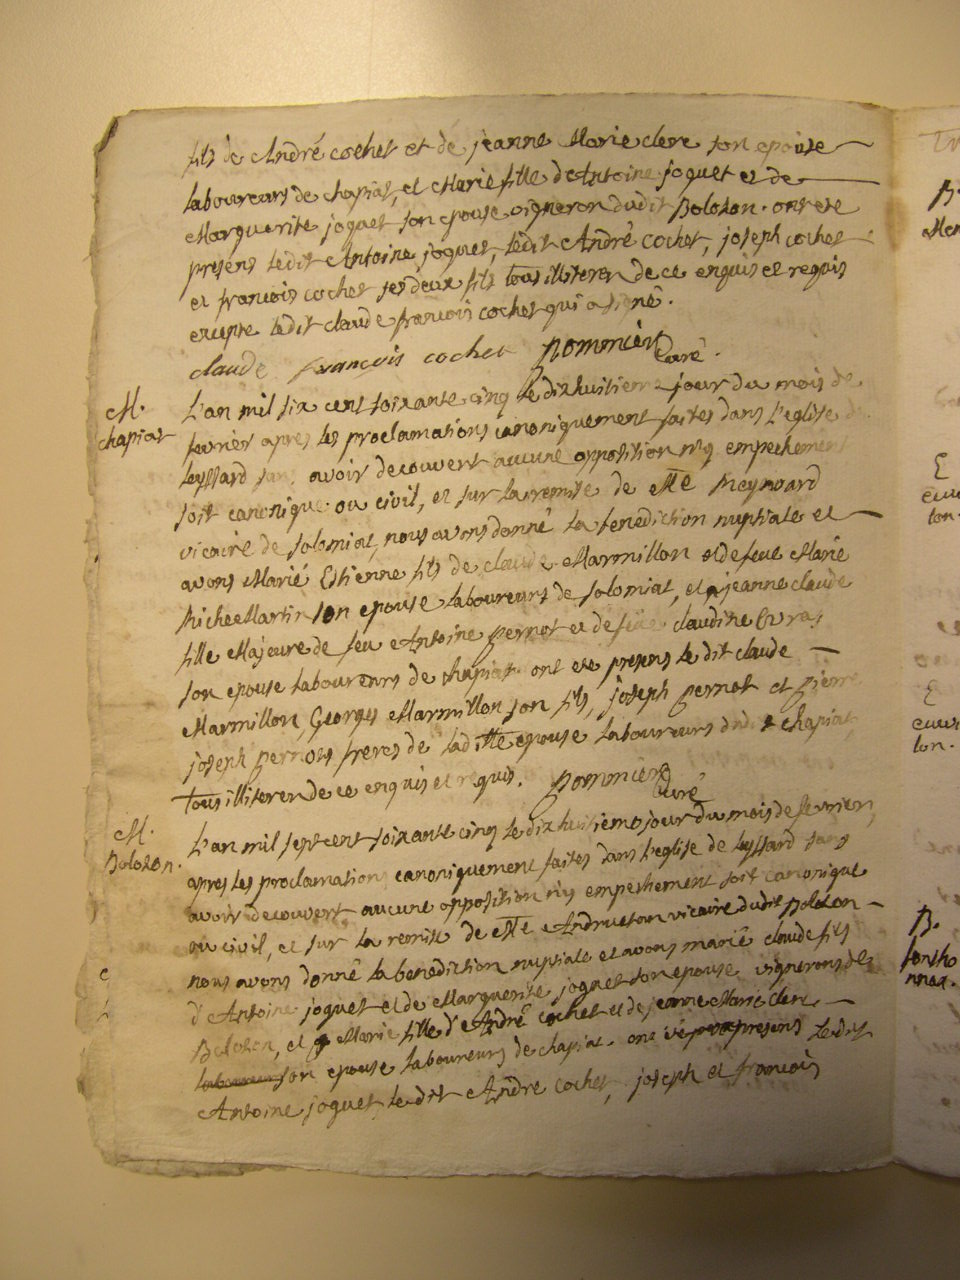 fils de André cochet et de jeanne Marie clerc son epouse
laboureurs de chapiat, et Marie fille d'Antoine joguet et de
Marguerite joguet son epouse vigneron dudit Bolozon. ont ete
presens ledit Antoine joguet, ledit André cochet, joseph cochet
et francois cochet ses deux fils tous illiteren de ce enquis et requis
excepte ledit claude francois cochet qui a signé.
claude françois cochet pommier Curé.
M.
chapiat
L'an mil six cent soixante cinq le dixhuitieme jour du mois de
fevrier apres les proclamations canoniquement faites dans l'eglise de
leyssard sans avoir decouvert aucune opposition ny empechement
soit canonique ou civil, et sur la remise de Mre Meynard
vicaire de solomiat, nous avons donné la benediction nuptiale et
avons Marié Estienne fils de claude Marmillon et de feue Marie
Michee Martin son epouse laboureurs de solomiat, et jeanne claude
fille Majeure de feu Antoine pernot et de feue claudine
son epouse laboureurs de chapiat. ont ete presens le dit claude
Marmillon, Georges Marmillon son fils, joseph pernot et pierre
joseph pernots freres de laditte epouse laboureurs dudit chapiat,
tous illiteren de ce enquis et requis. pommier Curé
M.
Bolozon.
L'an mil sept cent soixante cinq le dixhuitieme jour du mois de fevrier,
apres les proclamations canoniquement faites dans l'eglise de leyssard sans
avoir decouvert aucune opposition ny empechement soit canonique
ou civil, et sur la remise de Mre Andruetan vicaire dudit Bolozon
nous avons donné la benediction nuptiale et avons marié claude fils
d'Antoine joguet et de Marguerite joguet son epouse vignerons de
Bolozon, et Marie fille d'André cochet et de jeanne Marie clerc
son epouse laboureurs de chapiat. ont été presens ledit
Antoine joguet, le dit André cochet, joseph et francois
B.
E
ton.
E
ton.
B.